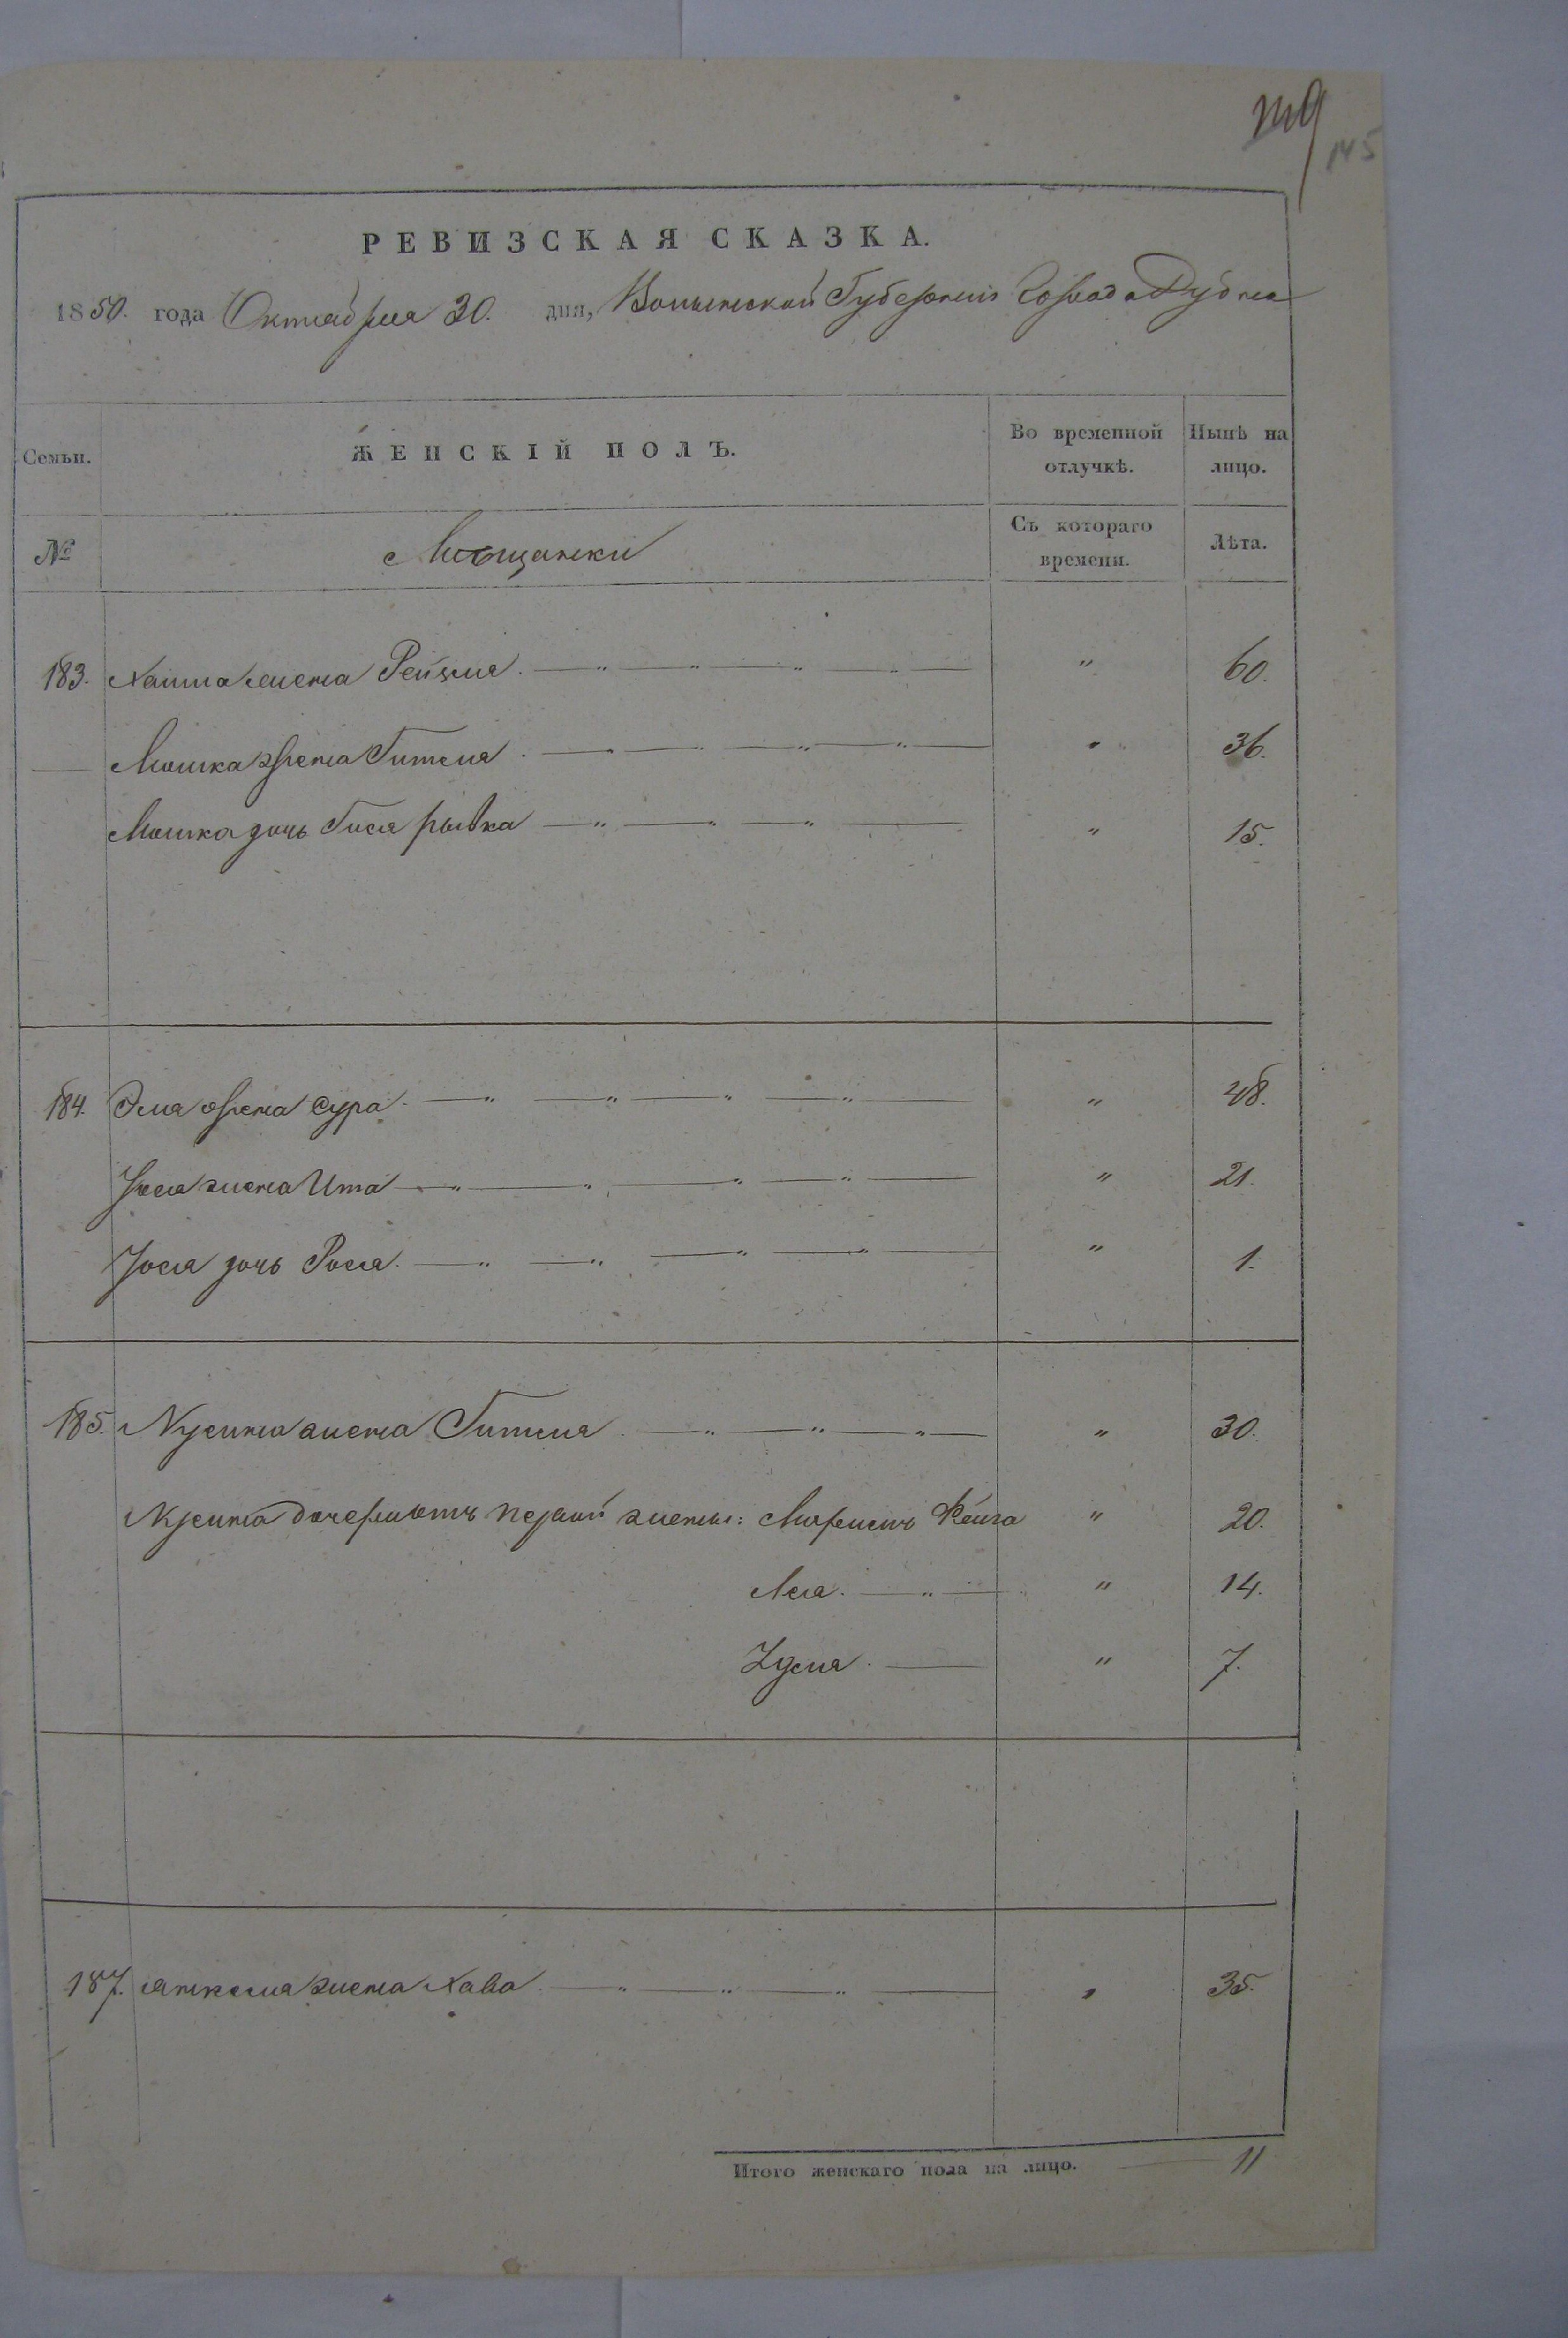 145
РЕВИЗСКАЯ СКАЗКА.
1850. года Октября 30. дня, Волынской Губернии Города Дубна
Семьи.
ЖЕНСКІЙ ПОЛЪ.
Во временной отлучкѣ.
Нынѣ на лицо.
№
Мѣщанки
Съ котораго времени.
Лѣта.
183. жена Рейзля. — " — " — " — " — " 60.
Мошка жена Гителя — " — " — " — " — " 36.
Мошка дочь Гися рывка — " — " — " — " 15.
184. Эля жена Сура. — " — " — " — " — " 48.
Іося жена Ита — " — " — " — " — " 21.
Іося дочь Рося. — " — " — " — " — " 1.
185. Нусина жена Гителя — " — " — " — " 30.
Нусина дочери отъ первой жены: Фейга " 20.
Лея. — " — " 14.
— " 7.
187. жена Хава — " — " — " — " 35.
Итого женскаго пола на лицо. — 11